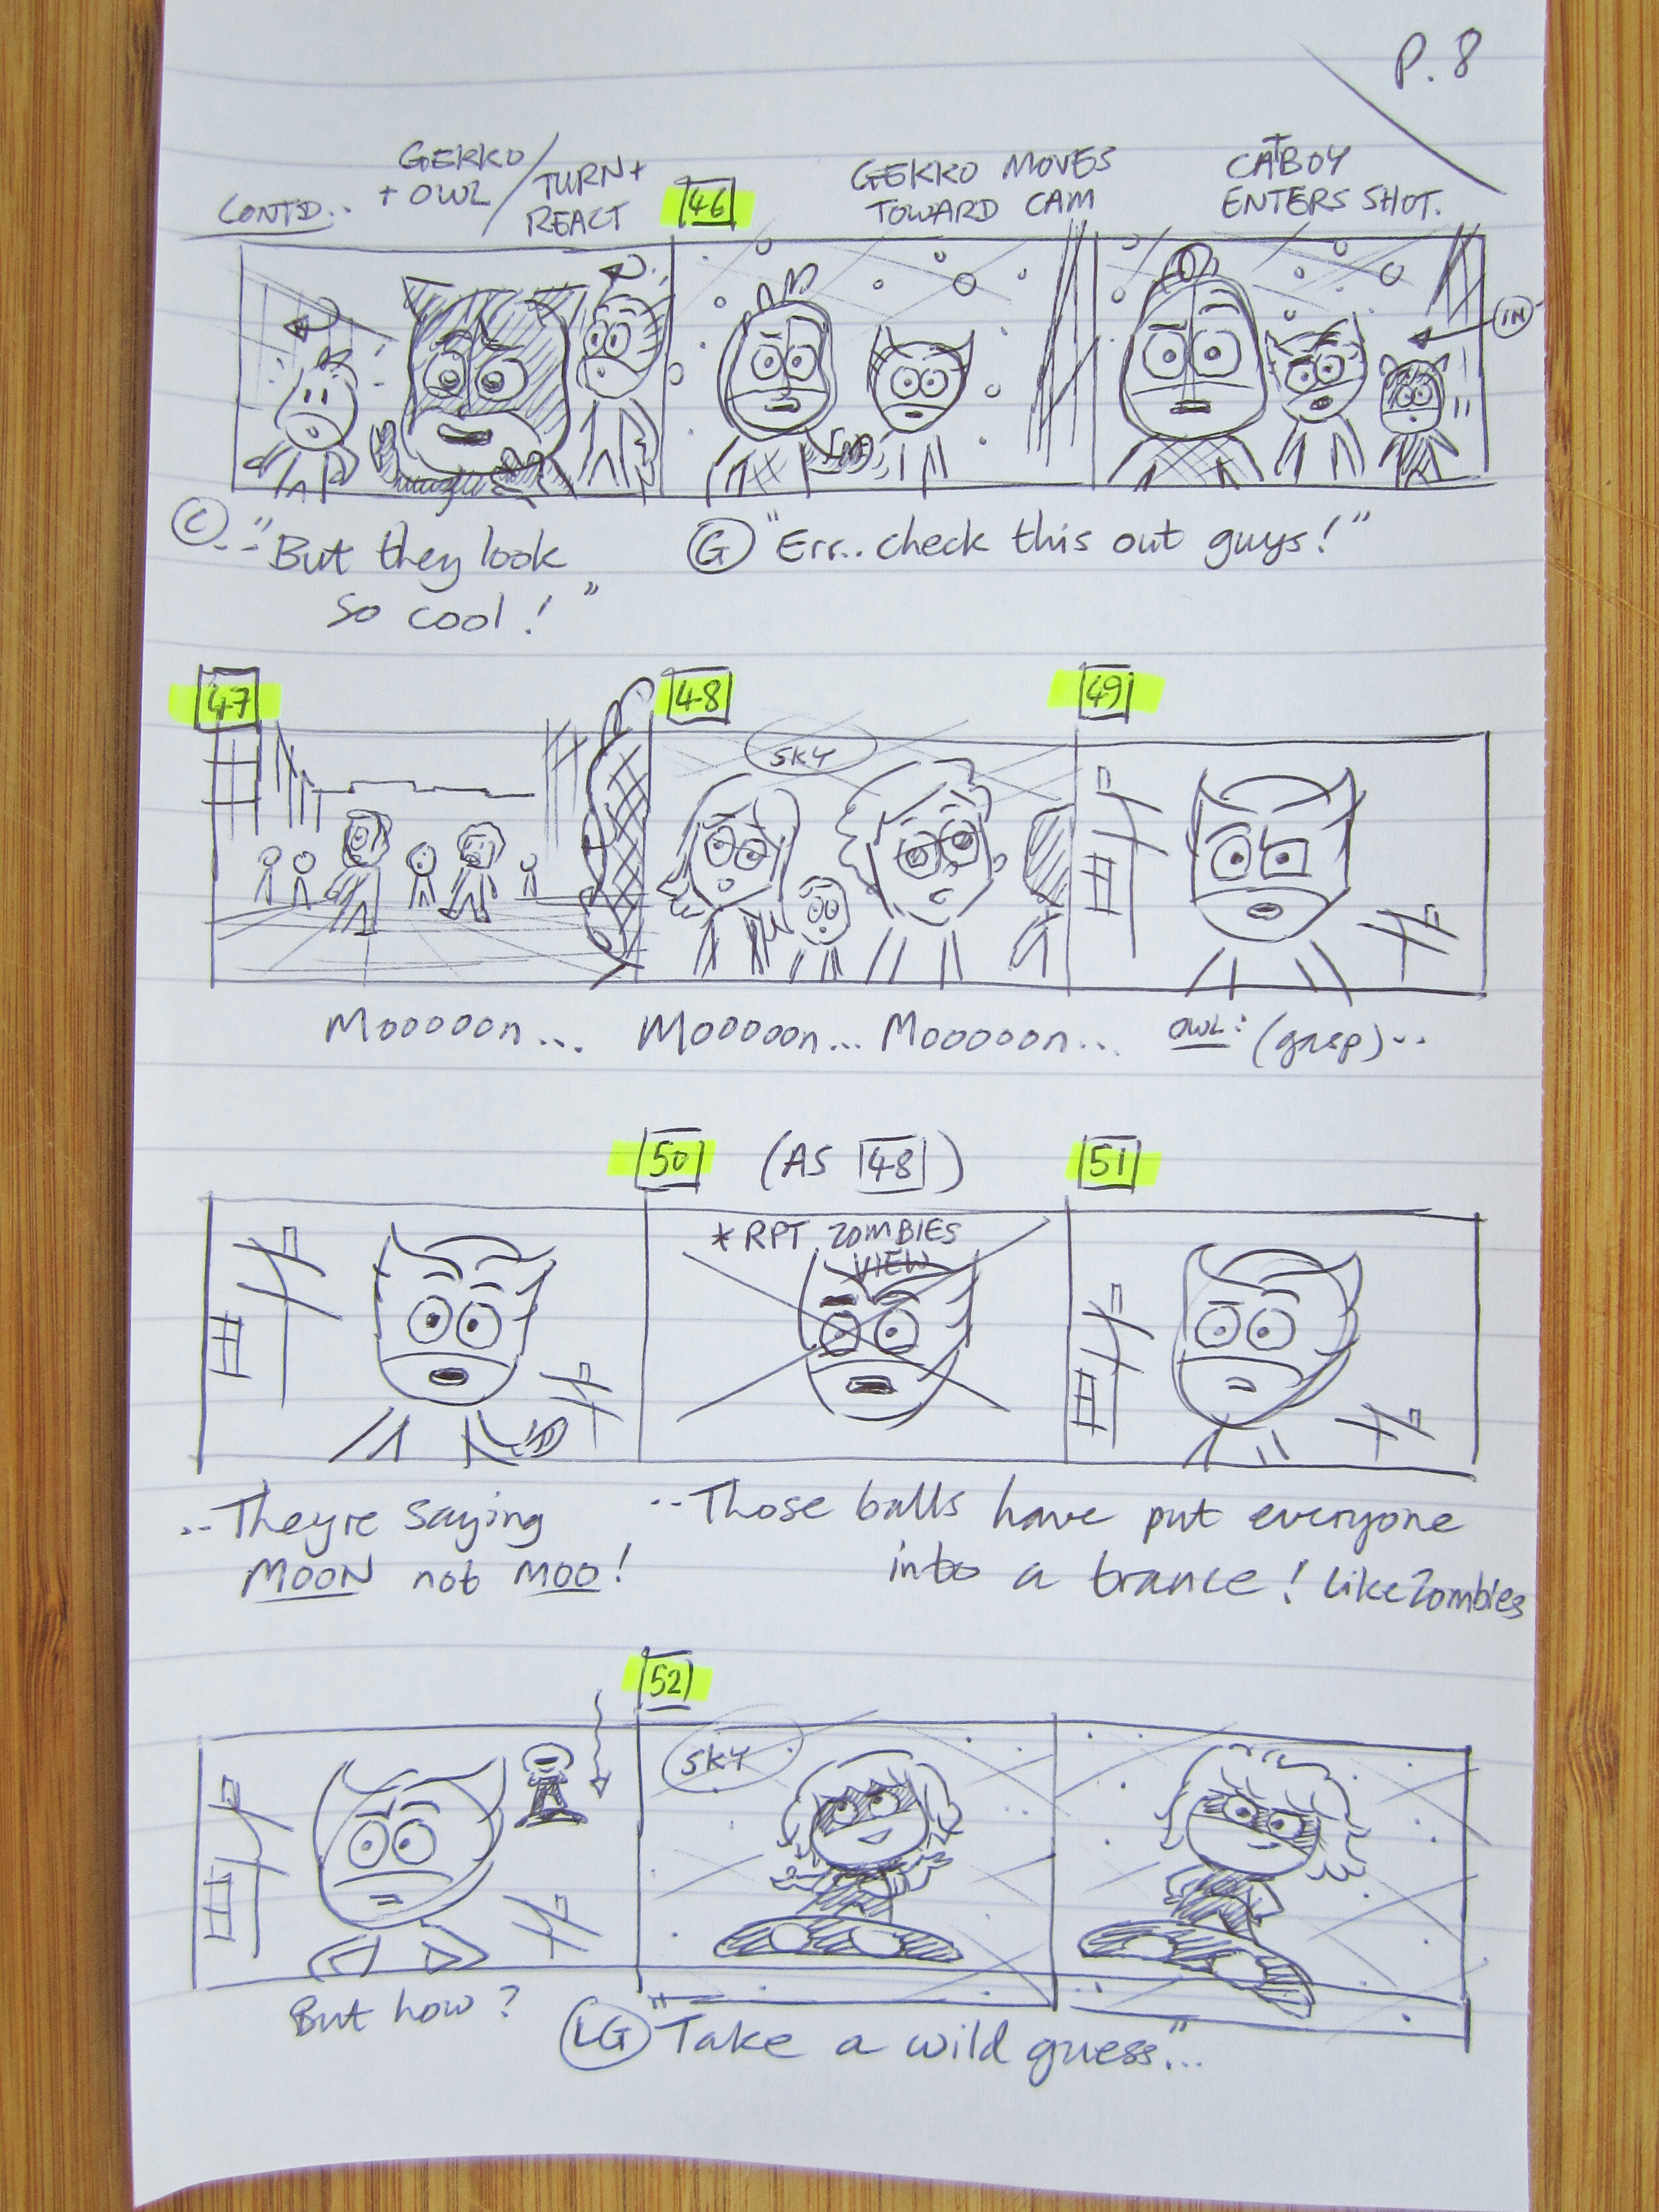 P. 8
CONTD..
GEKKO
+ OWL /
TURN +
REACT
46
GEKKO MOVES
TOWARD CAM
CATBOY
ENTERS SHOT.
IN
C .. "But they look
so cool!"
G "Err.. check this out guys!"
47
48
49
SKY
Mooooon...
Mooooon... Mooooon...
OWL: (gasp)...
50 (AS 48)
51
* RPT ZOMBIES
VIEW
..Theyre saying
MOON not MOO!
..Those balls have put everyone
into a trance! Like Zombies
52
SKY
But how?
LG "Take a wild guess..."